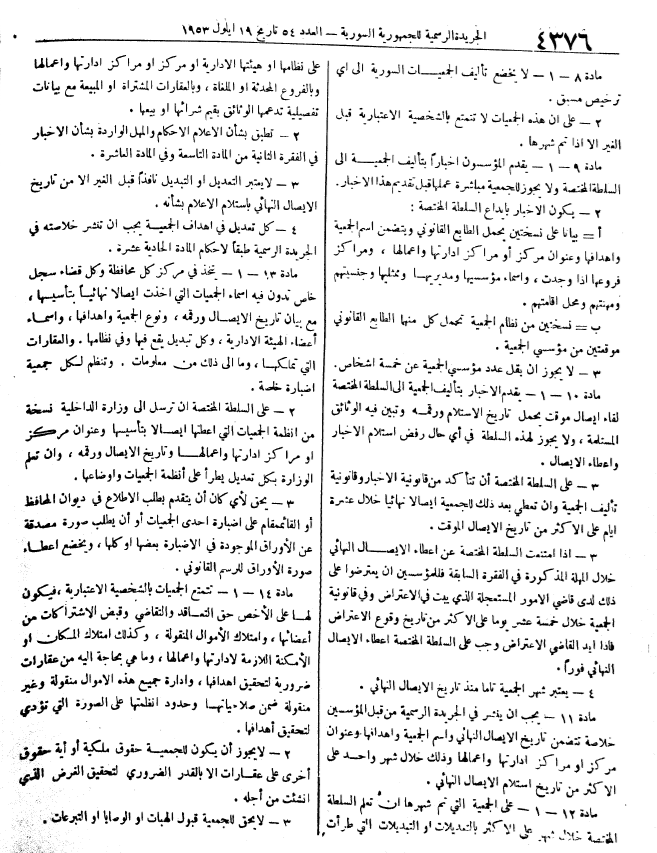 ٤٣٧٦
الجريدة الرسمية للجمهورية السورية — العدد ٥٤ تاريخ ١٩ ايلول ١٩٥٣
مادة ٨ — ١ — لا يخضع تأليف الجمعيات السورية الى اي
ترخيص مسبق .
٢ — على ان هذه الجمعيات لا تتمتع بالشخصية الاعتبارية قبل
الغير الا اذا تم شهرها .
مادة ٩ — ١ — يقدم المؤسسون اخباراً بتأليف الجمعية الى
السلطة المختصة ولا يجوز للجمعية مباشرة عملها قبل تقديم هذا الاخبار.
٢ — يكون الاخبار بايداع السلطة المختصة :
أ = بيانا على نسختين يحمل الطابع القانوني ويتضمن اسم الجمعية
واهدافها وعنوان مركز أو مراكز ادارتها واعمالها ، ومراكز
فروعها اذا وجدت ، واسماء مؤسسيها ومديريها وممثليها وجنسيتهم
ومهنتهم ومحل اقامتهم .
ب = نسختين من نظام الجمعية تحمل كل منها الطابع القانوني
موقعتين من مؤسسي الجمعية .
٣ — لا يجوز ان يقل عدد مؤسسي الجمعية عن خمسة اشخاص.
مادة ١٠ — ١ — يقدم الاخبار بتأليف الجمعية الى السلطة المختصة
لقاء ايصال موقت يحمل تاريخ الاستلام ورقمه وتبين فيه الوثائق
المستلمة ، ولا يجوز لهذه السلطة في أي حال رفض استلام الاخبار
واعطاء الايصال .
٣ — على السلطة المختصة أن تتأكد من قانونية الاخبار وقانونية
تأليف الجمعية وان تعطي بعد ذلك للجمعية ايصالا نهائيا خلال عشرة
ايام على الاكثر من تاريخ الايصال الموقت .
٣ — اذا امتنعت السلطة المختصة عن اعطاء الايصال النهائي
خلال المهلة المذكورة في الفقرة السابقة فللمؤسسين ان يعترضوا على
ذلك لدى قاضي الامور المستعجلة الذي يبت في الاعتراض وفي قانونية
الجمعية خلال خمسة عشر يوما على الاكثر من تاريخ وقوع الاعتراض
فاذا ايد القاضي الاعتراض وجب على السلطة المختصة اعطاء الايصال
النهائي فوراً .
٤ — يعتبر شهر الجمعية تاما منذ تاريخ الايصال النهائي .
مادة ١١ — يجب ان ينشر في الجريدة الرسمية من قبل المؤسسين
خلاصة تتضمن تاريخ الايصال النهائي واسم الجمعية واهدافها وعنوان
مركز او مراكز ادارتها واعمالها وذلك خلال شهر واحد على
الاكثر من تاريخ استلام الايصال النهائي .
مادة ١٢ — ١ — على الجمعية التي تم شهرها ان تعلم السلطة
المختصة خلال شهر على الاكثر بالتعديلات او التبديلات التي طرأت
على نظامها او هيئتها الادارية او مركز او مراكز ادارتها واعمالها
وبالفروع المحدثة او الملغاة ، وبالعقارات المشتراة او المبيعة مع بيانات
تفصيلية تدعمها الوثائق بقيم شرائها او بيعها .
٢ — تطبق بشأن الاعلام الاحكام والمهل الواردة بشأن الاخبار
في الفقرة الثانية من المادة التاسعة وفي المادة العاشرة .
٣ — لا يعتبر التعديل او التبديل نافذاً قبل الغير الا من تاريخ
الايصال النهائي باستلام الاعلام بشأنه .
٤ — كل تعديل في اهداف الجمعية يجب ان تنشر خلاصته في
الجريدة الرسمية طبقاً لاحكام المادة الحادية عشرة .
مادة ١٣ — ١ — يتخذ في مركز كل محافظة وكل قضاء سجل
خاص تدون فيه اسماء الجمعيات التي اخذت ايصالا نهائياً بتأسيسها ،
مع بيان تاريخ الايصال ورقمه ، ونوع الجمعية واهدافها ، واسماء
أعضاء الهيئة الادارية ، وكل تبديل يقع فيها وفي نظامها . والعقارات
التي تمتلكها ، وما الى ذلك من معلومات . وتنظم لكل جمعية
اضبارة خاصة .
٢ — على السلطة المختصة ان ترسل الى وزارة الداخلية نسخة
من انظمة الجمعيات التي اعطتها ايصالا بتأسيسها وعنوان مركز
او مراكز ادارتها واعمالها وتاريخ الايصال ورقمه ، وان تعلم
الوزارة بكل تعديل يطرأ على أنظمة الجمعيات واوضاعها .
٣ — يحق لأي كان أن يتقدم بطلب الاطلاع في ديوان المحافظ
أو القائمقام على اضبارة احدى الجمعيات أو أن يطلب صورة مصدقة
عن الأوراق الموجودة في الاضبارة بعضها او كلها ، ويخضع اعطاء
صورة الأوراق للرسم القانوني .
مادة ١٤ — ١ — تتمتع الجمعيات بالشخصية الاعتبارية ، فيكون
لها على الأخص حق التعاقد والتقاضي وقبض الاشتراكات من
أعضائها ، وامتلاك الأموال المنقولة ، وكذلك امتلاك المكان او
الأمكنة اللازمة لادارتها واعمالها ، وما هي بحاجة اليه من عقارات
ضرورية لتحقيق اهدافها ، وادارة جميع هذه الاموال منقولة وغير
منقولة ضمن صلاحياتها وحدود انظمتها على الصورة التي تؤدي
لتحقيق أهدافها .
٢ — لا يجوز أن يكون للجمعية حقوق ملكية أو أية حقوق
أخرى على عقارات الا بالقدر الضروري لتحقيق الغرض الذي
انشئت من أجله .
٣ — لا يحق للجمعية قبول الهبات او الوصايا او التبرعات .